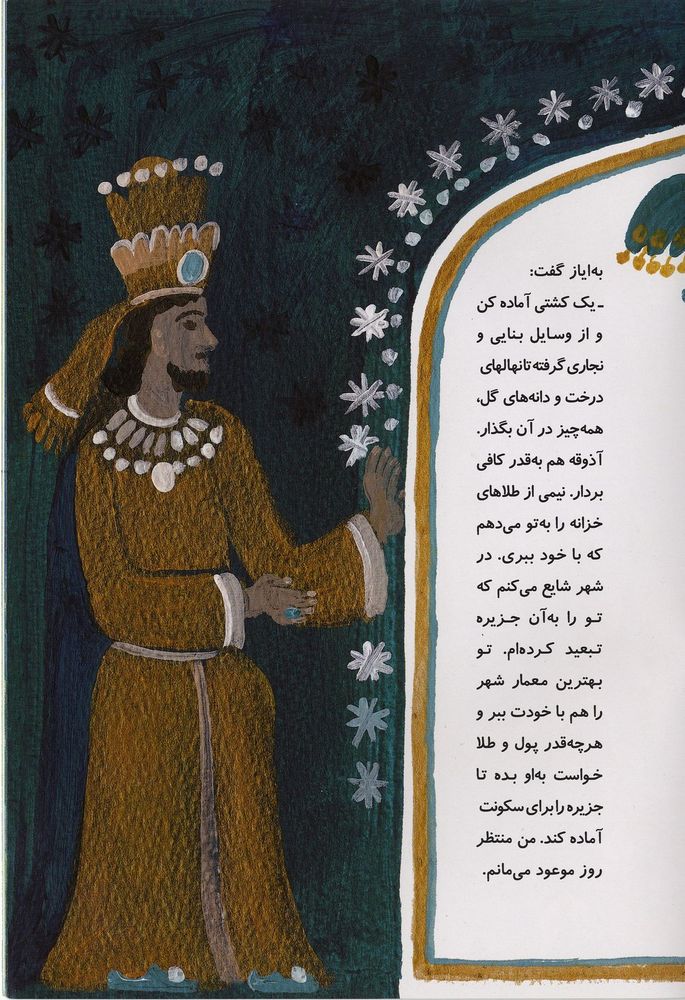 به‌ایاز گفت:
ـ یک کشتی آماده کن
و از وسایل بنایی و
نجاری گرفته تا نهالهای
درخت و دانه‌های گل،
همه‌چیز در آن بگذار.
آذوقه هم به‌قدر کافی
بردار. نیمی از طلاهای
خزانه را به‌تو می‌دهم
که با خود ببری. در
شهر شایع می‌کنم که
تو را به‌آن جزیره
تبعید کرده‌ام. تو
بهترین معمار شهر
را هم با خودت ببر و
هرچه‌قدر پول و طلا
خواست به‌او بده تا
جزیره را برای سکونت
آماده کند. من منتظر
روز موعود می‌مانم.